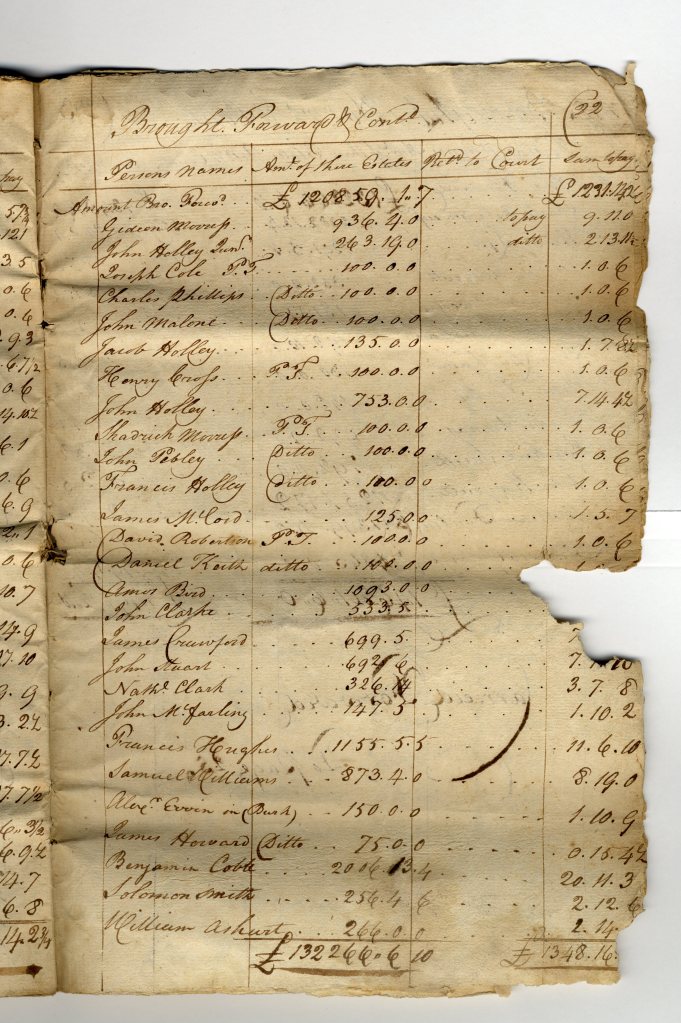 22
Brought. Forward & Contd.
Persons names Amt. of there Estates Retd. to Court Sum to pay
Amount Bro. Forwd. £ 120859. 1. 7 £ 1231.14
Gideon Morriss 936. 4. 0 to pay 9. 11. 0
John Holley Junr. 263. 19. 0 ditto 2. 13. 11
Joseph Cole P.T. 100. 0. 0 1. 0. 6
Charles Phillips Ditto 100. 0. 0 1. 0. 6
John Malone Ditto 100. 0. 0 1. 0. 6
Jacob Holley 135. 0. 0 1. 7. 8½
Henry Cross P.T. 100. 0. 0 1. 0. 6
John Holley 753. 0. 0 7. 14. 4½
Shadrick Morriss P.T. 100. 0. 0 1. 0. 6
John Pebley Ditto 100. 0. 0 1. 0. 6
Francis Holley Ditto 100. 0. 0 1. 0. 6
James McCord 125. 0. 0 1. 5. 7
David Robertson P.T. 100. 0. 0 1. 0. 6
Daniel Keith ditto 100. 0. 0 1. 0. 6
Amos Bird 1093. 0. 0
John Clarke 533. 5
James Crawford 699. 5 7
John Stuart 692. 6 7. 10
Nathl. Clark 326. 14 3. 7. 8
John McFarling 147. 5 1. 10. 2
Francis Hughes 1155. 5. 5 11. 6. 10
Samuel Williams 873. 4. 0 8. 19. 0
Alexr. Ervin in (Burk) 150. 0. 0 1. 10. 9
James Howard Ditto 75. 0. 0 0. 15. 4½
Benjamin Coble 2006. 13. 4 20. 11. 3
Solomon Smith 256. 4. 6 2. 12. 6
William Ashurt 266. 0. 0 2. 14
£ 132266. 6 10 £ 1348. 16